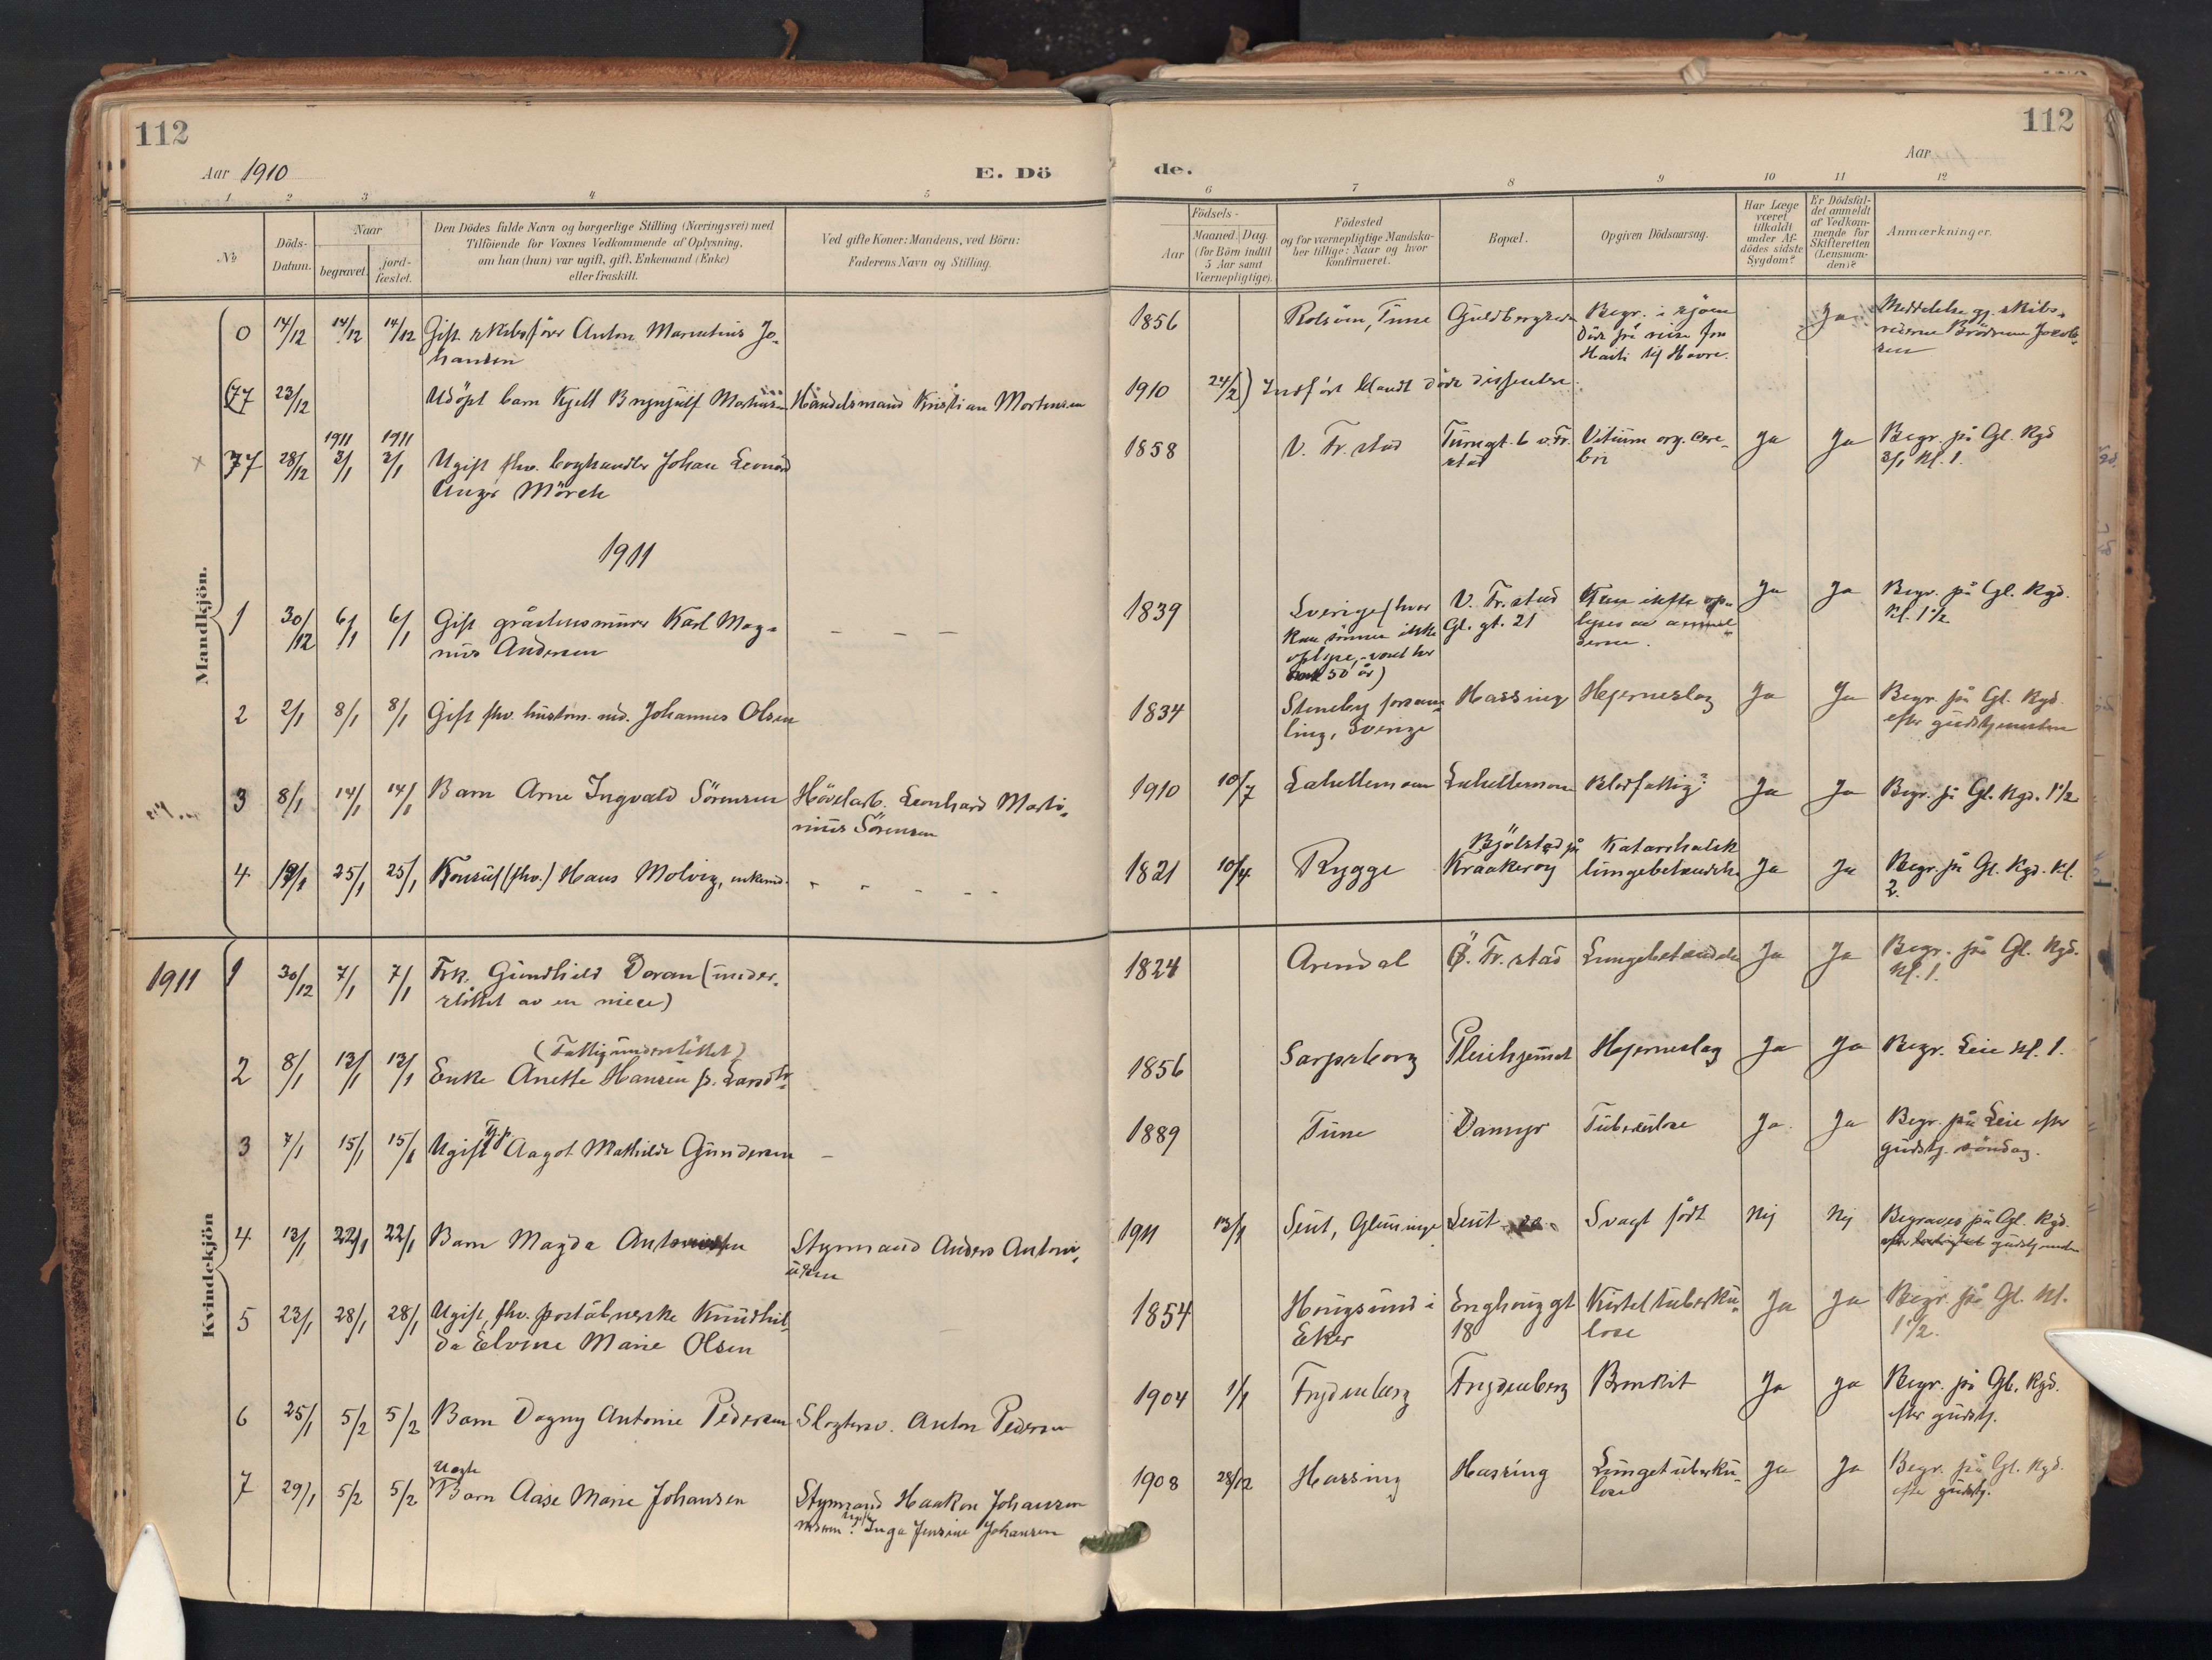 112
112
Aar 1910
E. Dö
de.
Aar
1 2 3 4 5 6 7 8 9 10 11 12
№
Döds-
Datum.
Naar
begravet.
jord-
fæstet.
Den Dödes fulde Navn og borgerlige Stilling (Næringsvei) med
Tilföiende for Voxnes Vedkommende af Oplysning,
om han (hun) var ugift, gift, Enkemand (Enke)
eller fraskilt.
Ved gifte Koner: Mandens, ved Börn:
Faderens Navn og Stilling.
Födsels-
Aar
Maaned. Dag.
(for Börn indtil
5 Aar samt
Værnepligtige).
Födested
og for værnepligtige Mandska-
ber tillige: Naar og hvor
konfirmeret.
Bopæl.
Opgiven Dödsaarsag.
Har Læge
været
tilkaldt
under Af-
dödes sidste
Sygdom?
Er Dödsfal-
det anmeldt
af Vedkom-
mende for
Skifteretten
(Lensman-
den)?
Anmærkninger.
Mandkjön.
0 14/12 14/12 14/12 Gift skibsförer Anton Jo-
hansen
1856 Rolsöen, Tune Begr. i sjöen
Döde på reise fra
Haiti til Havre.
Ja
(77 23/12 Udöpt barn Kjell Brynjulf Mortensen Handelsmand Kristian Mortensen 1910 24/2) Indfört blandt döde dissentere.
77 28/12 1911 3/1 1911 3/1 Ugift fhv. boghandler Johan Leonard
Unger Mörch
1858 V. Fr.stad Turngt. 6 v. Fr.
stad
Vitium org. cere-
bri
Ja Ja Begr. på Gl. Kgd
3/1 kl. 1.
1911
1 30/12 6/1 6/1 Gift gråstensmurer Karl Mag-
nus Andersen
1839 Sverige (hvor
kan sönnen ikke
oplyse, - vært her
50 år)
V. Fr.stad
Gl. gt. 21
Kan ikke op-
lyses av anmel-
deren.
Ja Ja Begr. på Gl. Kgd.
kl. 1½
2 2/1 8/1 8/1 Gift fhv. Johannes Olsen
1834 Steneby forsam-
ling, Sverige
Hassing Hjerneslag Ja Ja Begr. på Gl. Kgd.
efter gudstjenesten
3 8/1 14/1 14/1 Barn Arne Ingvald Sörensen Hövelarb. Leonhard Marti-
nius Sörensen
1910 10/7 Lahellemoen Lahellemoen Blodfattig? Ja Ja Begr. på Gl. Kgd. 1½
4 19/1 25/1 25/1 Konsul (fhv.) Hans Molvig, enkemd.
1821 10/4 Rygge Bjölstad på
Kraakeröy
Katarrhalsk
lungebetændelse
Ja Ja Begr. på Gl. Kgd. kl.
2.
Kvindekjön
1911 1 30/12 7/1 7/1 Frk. Gundhild Doran (under-
stöttet av en niece)
1824 Arendal Ö. Fr.stad Lungebetændelse Ja Ja Begr. på Gl. Kgd.
kl. 1.
2 8/1 13/1 13/1 (Fattigunderstöttet)
Enke Anette Hansen
1856 Sarpsborg Pleiehjemmet Hjerneslag Ja Ja Begr. Leie kl. 1.
3 7/1 15/1 15/1 Ugift Aagot Mathilde Gundersen
1889 Tune Damyr Tuberkulose Ja Ja Begr. på Leie efter
gudstj. söndag.
4 13/1 22/1 22/1 Barn Magda Styrmand Anders Antoni-
usen
1911 13/1 Leut. Svagt födt Nej Nej Begraves på Gl. Kgd.
5 23/1 28/1 28/1 Ugift, fhv. poståbnerske Knudhil-
da Elvine Marie Olsen
1854 Hougsund i
Eker
Enghouggt
18
Kirteltuberku-
lose
Ja Ja Begr. på Gl. kl.
1½.
6 25/1 5/2 5/2 Barn Dagny Antonie Pedersen Anton Pedersen
1904 1/1 Frydenberg Frydenberg Bronkit Ja Ja Begr. på Gl. Kgd.
efter gudstj.
7 29/1 5/2 5/2 Uægte
Barn Aase Marie Johansen Styrmand Haakon Johansen
Inga Jensine Johansen
1908 28/12 Hassing Hassing Lungetuberku-
lose
Ja Ja Begr. på Gl. Kgd.
efter gudstj.